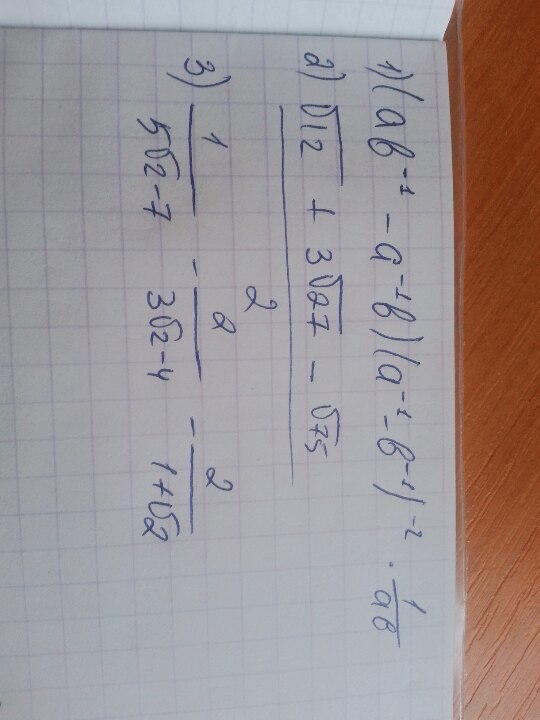 1) (ab⁻¹ - a⁻¹b)(a⁻¹ - b⁻¹)⁻² · 1/ab
2) (√12 + 3√27 - √75)/2
3) 1/(5√2-7) - 2/(3√2-4) - 2/(1+√2)